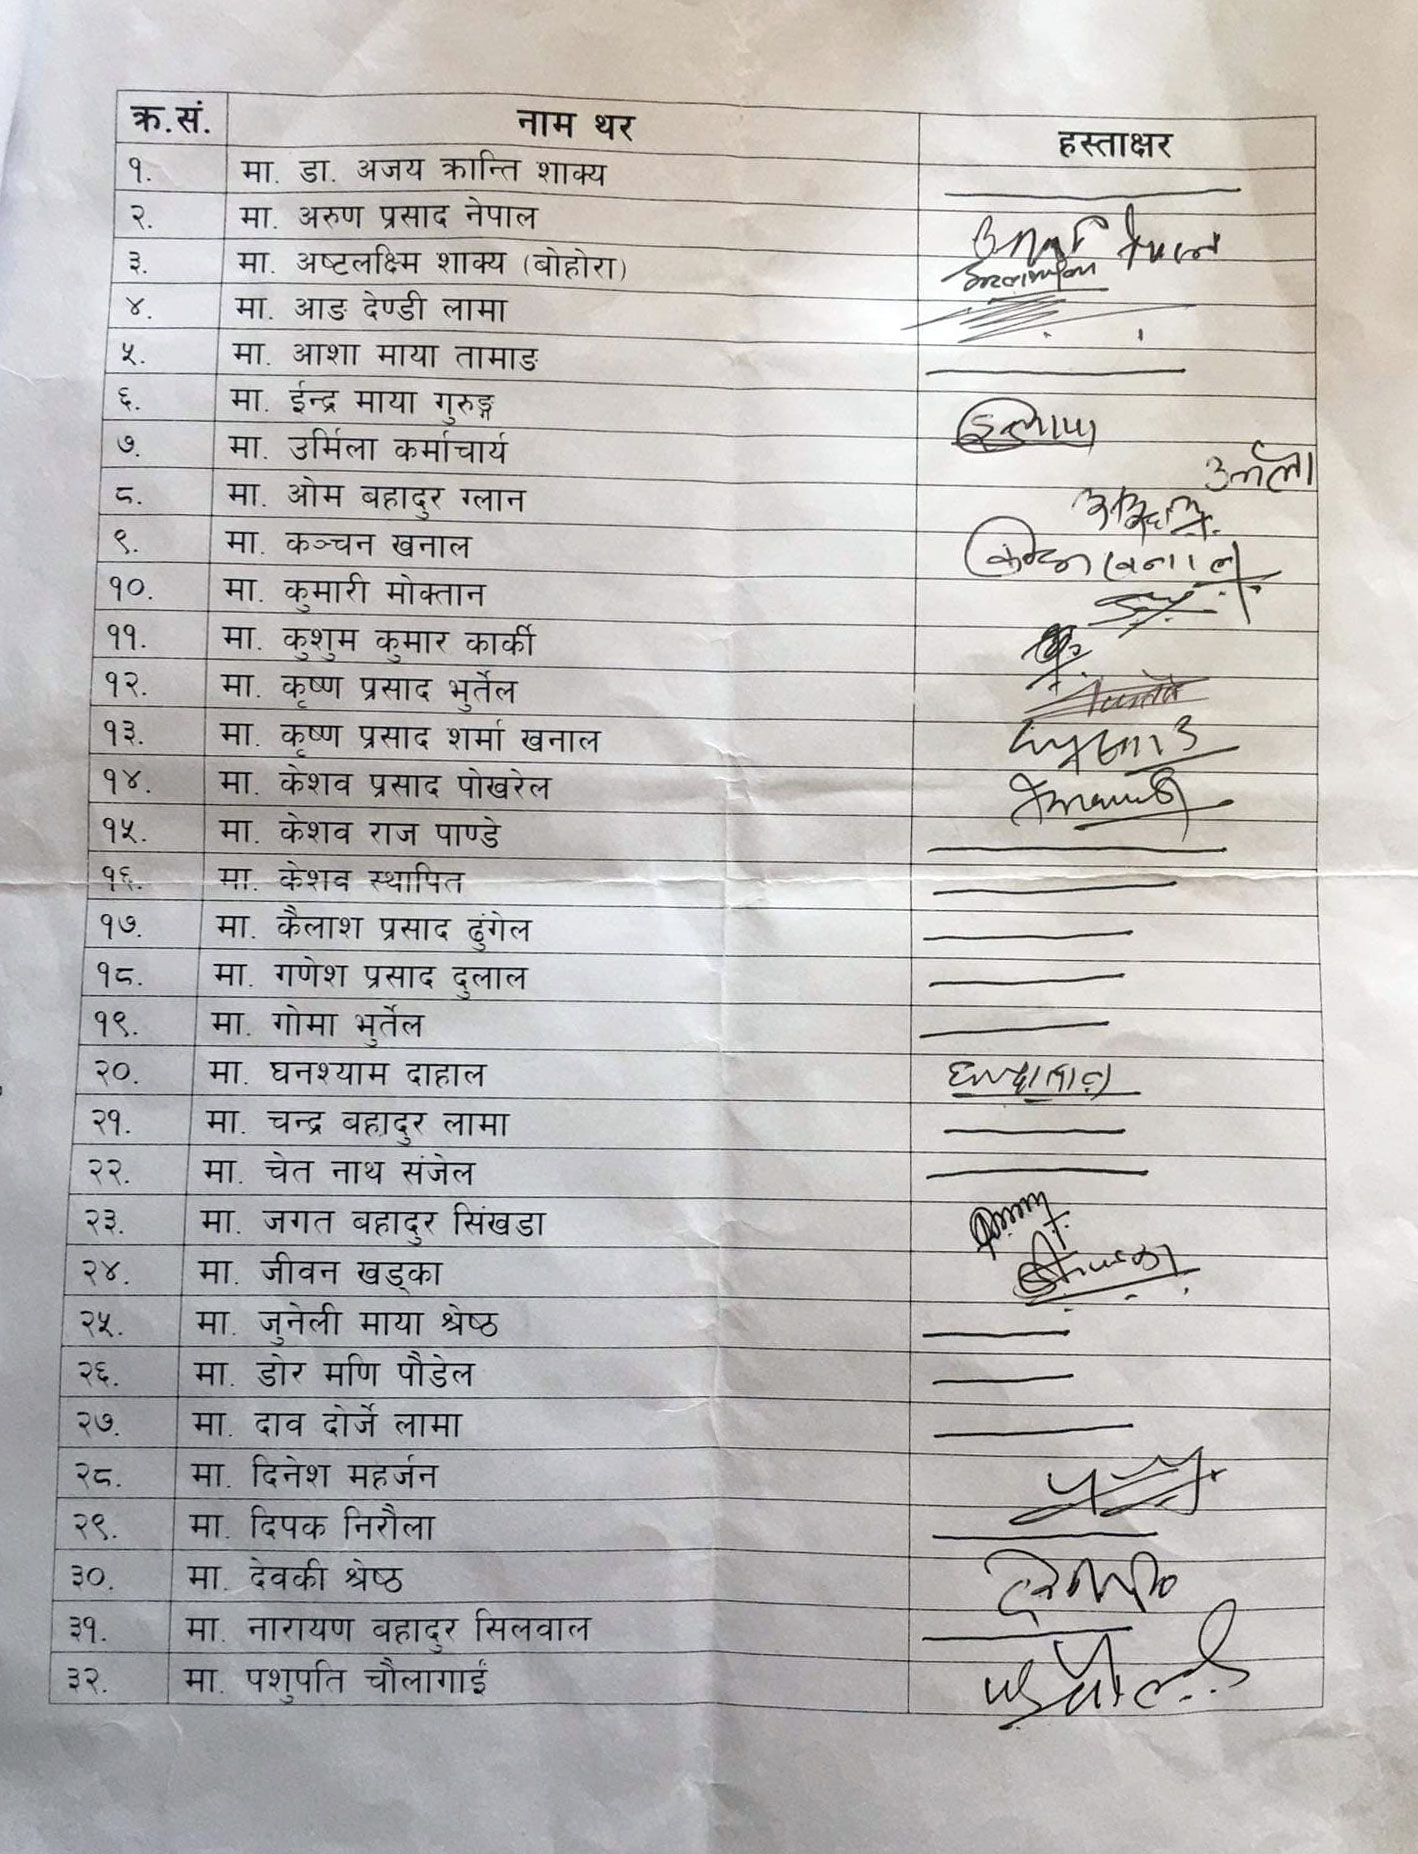 क्र.सं. नाम थर हस्ताक्षर
१. मा. डा. अजय क्रान्ति शाक्य
२. मा. अरुण प्रसाद नेपाल
३. मा. अष्टलक्ष्मि शाक्य (बोहोरा)
४. मा. आङ देण्डी लामा
५. मा. आशा माया तामाङ
६. मा. ईन्द्र माया गुरुङ्ग
७. मा. उर्मिला कर्माचार्य
८. मा. ओम बहादुर ग्लान
९. मा. कञ्चन खनाल
१०. मा. कुमारी मोक्तान
११. मा. कुशुम कुमार कार्की
१२. मा. कृष्ण प्रसाद भुर्तेल
१३. मा. कृष्ण प्रसाद शर्मा खनाल
१४. मा. केशव प्रसाद पोखरेल
१५. मा. केशव राज पाण्डे
१६. मा. केशव स्थापित
१७. मा. कैलाश प्रसाद ढुंगेल
१८. मा. गणेश प्रसाद दुलाल
१९. मा. गोमा भुर्तेल
२०. मा. घनश्याम दाहाल
२१. मा. चन्द्र बहादुर लामा
२२. मा. चेत नाथ संजेल
२३. मा. जगत बहादुर सिंखडा
२४. मा. जीवन खड्का
२५. मा. जुनेली माया श्रेष्ठ
२६. मा. डोर मणि पौडेल
२७. मा. दाव दोर्जे लामा
२८. मा. दिनेश महर्जन
२९. मा. दिपक निरौला
३०. मा. देवकी श्रेष्ठ
३१. मा. नारायण बहादुर सिलवाल
३२. मा. पशुपति चौलागाईं